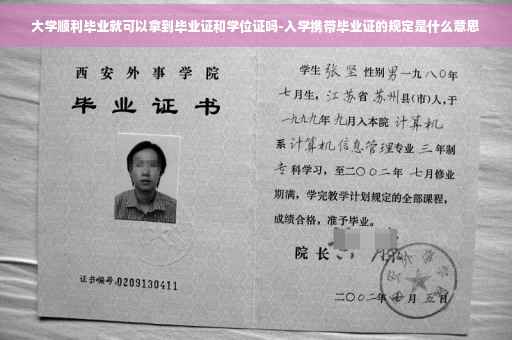 大学顺利毕业就可以拿到毕业证和学位证吗-入学携带毕业证的规定是什么意思
西安外事学院
毕业证书
证书编号:0209130411
学生 张坚 性别 男 一九八〇年
七月生，江苏省 苏州县(市)人，于
一九九九年 九月入本院 计算机
系 计算机信息管理专业 三 年制
专科学习，至二〇〇二年 七月修业
期满，学完教学计划规定的全部课程，
成绩合格，准予毕业。
院长
二〇〇二年 月 五日